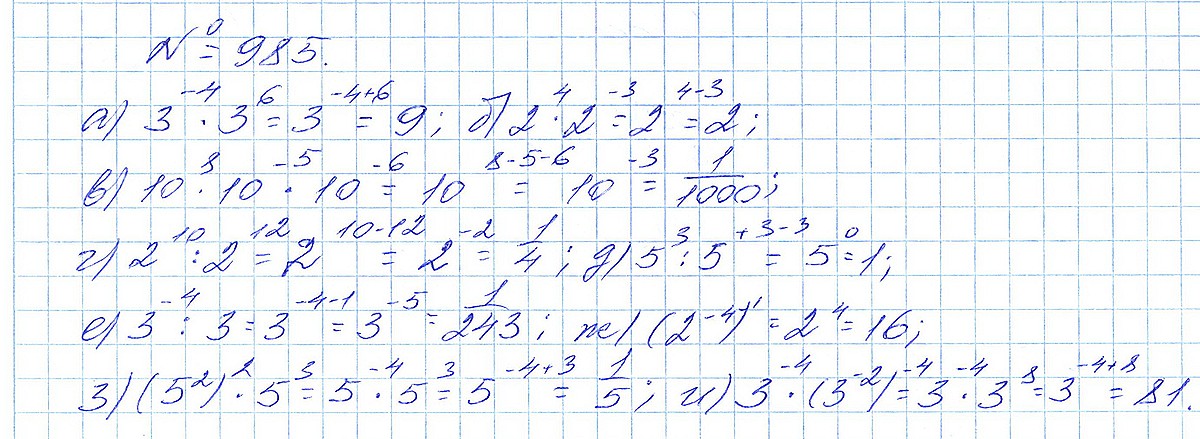 № 985.
а) 3⁻⁴ · 3⁶ = 3⁻⁴⁺⁶ = 9; б) 2⁴ · 2⁻³ = 2⁴⁻³ = 2;
в) 10⁸ · 10⁻⁵ · 10⁻⁶ = 10⁸⁻⁵⁻⁶ = 10⁻³ = 1/1000;
г) 2¹⁰ : 2¹² = 2¹⁰⁻¹² = 2⁻² = 1/4; д) 5³ : 5⁺³⁻³ = 5⁰ = 1;
е) 3⁻⁴ : 3 = 3⁻⁴⁻¹ = 3⁻⁵ = 1/243; ж) (2⁻⁴)⁻¹ = 2⁴ = 16;
з) (5²)² · 5³ = 5⁻⁴ · 5³ = 5⁻⁴⁺³ = 1/5; и) 3⁻⁴ · (3⁻²)⁻⁴ = 3⁻⁴ · 3⁸ = 3⁻⁴⁺⁸ = 81.